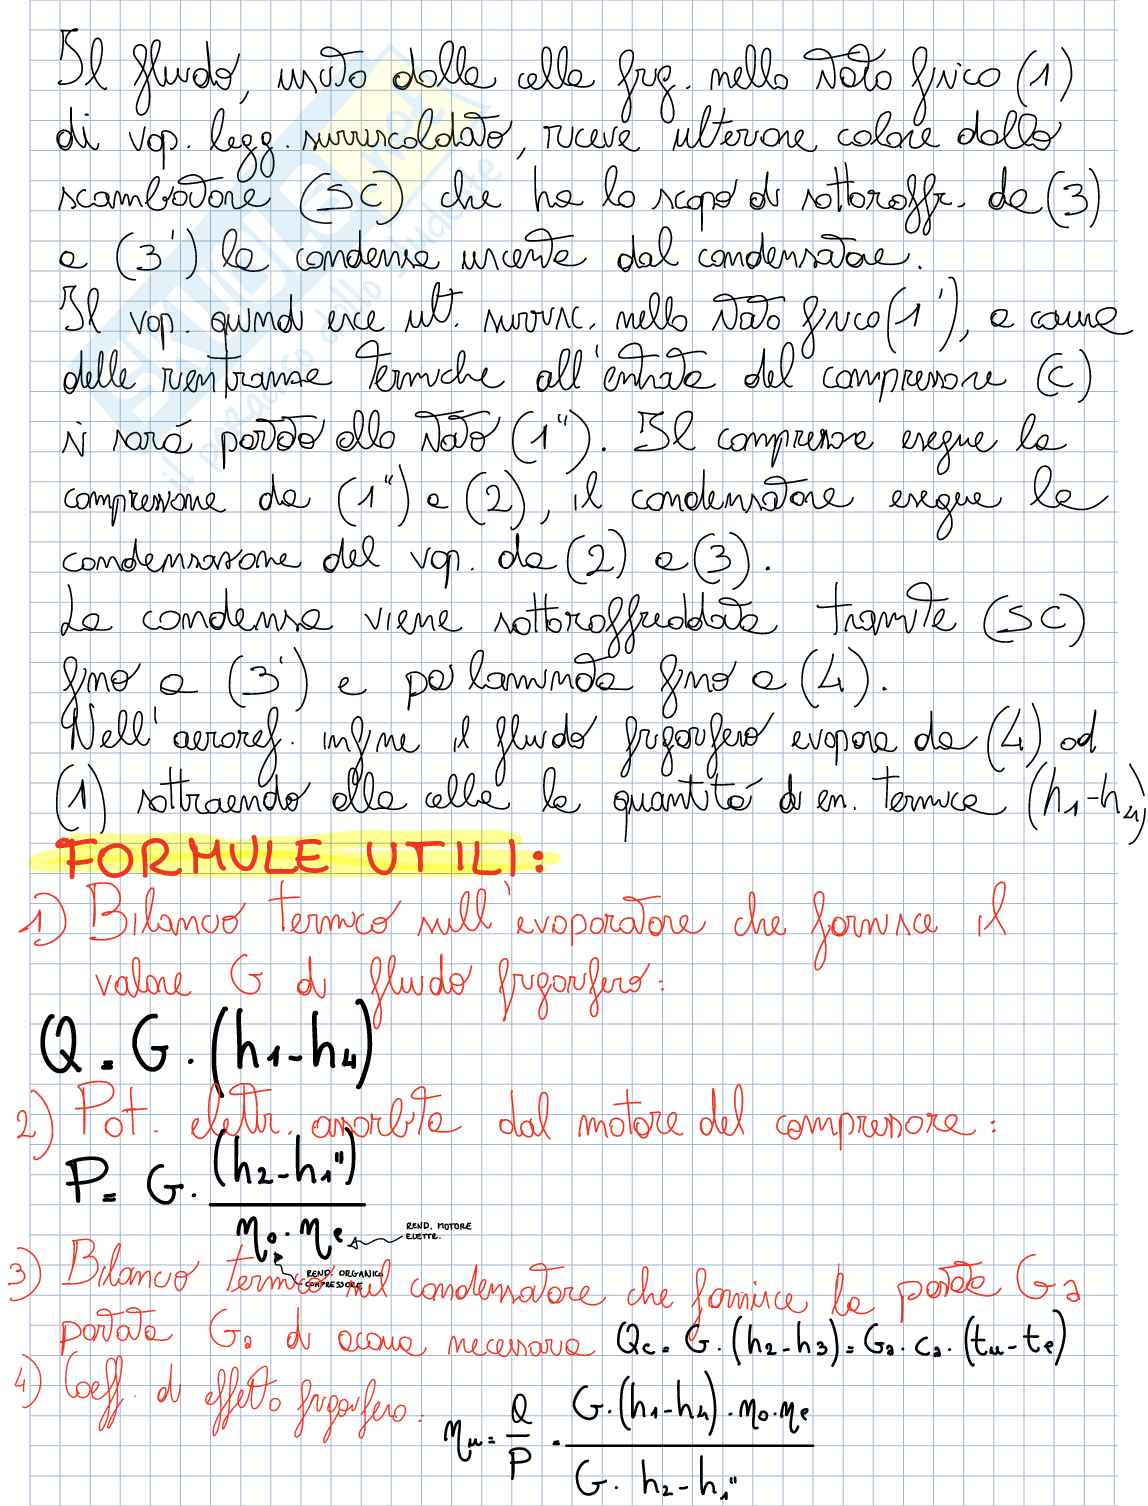 Il fluido, uscito dalla cella frig. nello stato fisico (1)
di vap. legg. surriscaldato, riceve ulteriore calore dallo
scambiatore (SC) che ha lo scopo di sottoraffr. da (3)
a (3') la condensa uscente dal condensatore.
Il vap. quindi esce ult. surrisc. nello stato fisico (1'), a causa
delle rientranze termiche all'entrata del compressore (C)
si sará portato allo stato (1"). Il compressore esegue la
compressione da (1") a (2), il condensatore esegue la
condensazione del vap. da (2) a (3).
La condensa viene sottoraffreddata tramite (SC)
fino a (3') e poi laminata fino a (4).
Nell'aeroref. infine il fluido frigorifero evapora da (4) ad
(1) sottraendo alla cella la quantitá di en. termica (h1-h4)
FORMULE UTILI:
1) Bilancio termico sull'evaporatore che fornisce il
valore G di fluido frigorifero:
Q = G · (h1-h4)
2) Pot. elettr. assorbita dal motore del compressore:
P = G · (h2-h1") / ηo · ηe
REND. MOTORE
ELETTR.
REND. ORGANICO
COMPRESSORE
3) Bilancio termico sul condensatore che fornisce la portata Ga
portata Ga di acqua necessaria Qc = G · (h2-h3) = Ga · ca · (tu-te)
4) Coeff. di effetto frigorifero:
ηu = Q/P = G·(h1-h4)·ηo·ηe / G · h2-h1"
SKUOLA.net
il paradiso dello studente